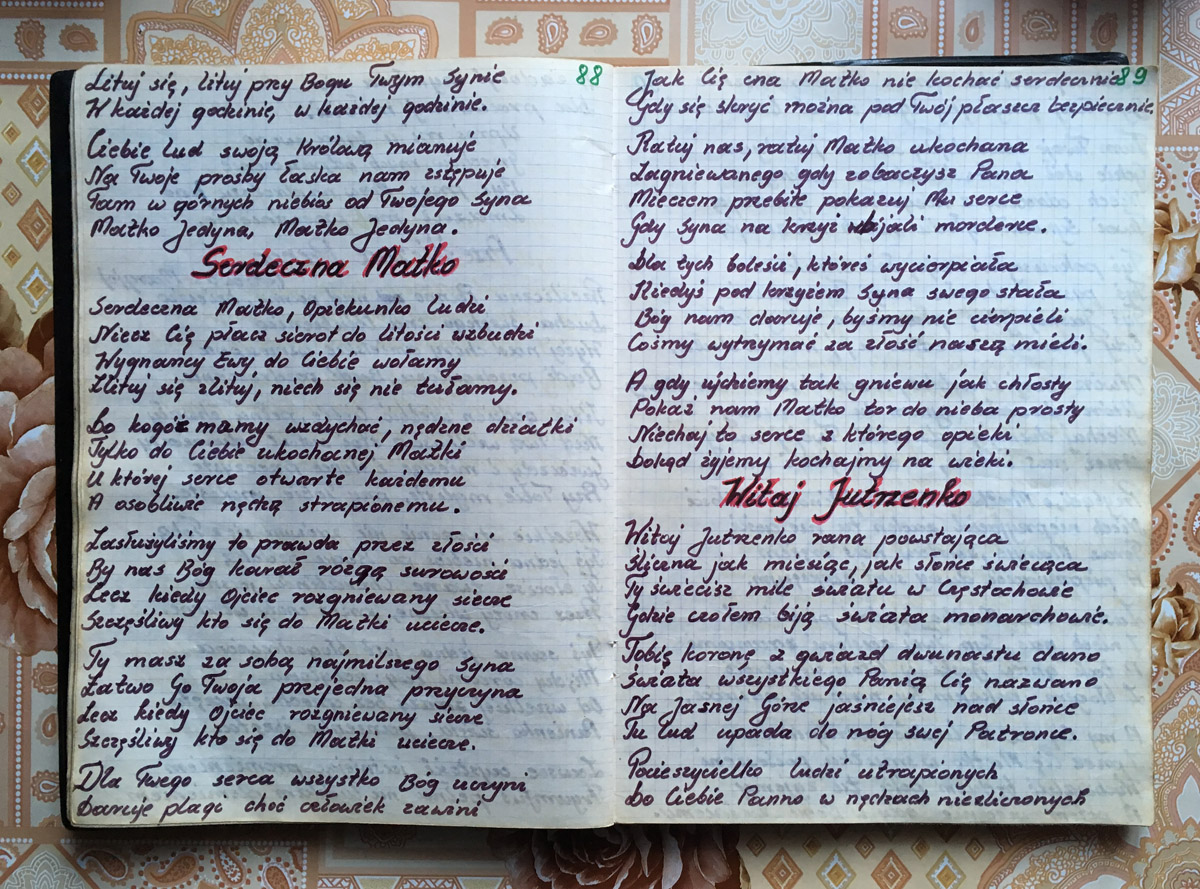 88
Lituj się, lituj przy Bogu Twym Synie
W każdej godzinie, w każdej godzinie.
Ciebie lud swoją Królową mianuje
Na Twoje prośby łaska nam zstępuje
Tam w górnych niebios od Twojego Syna
Matko Jedyna, Matko Jedyna.
Serdeczna Matko
Serdeczna Matko, Opiekunko ludzi
Niecz Cię płacz sierot do litości wzbudzi
Wygnańcy Ewy, do Ciebie wołamy
Zlituj się zlituj, niech się nie tułamy.
Do kogóż mamy wzdychać, nędzne dziatki
Tylko do Ciebie ukochanej Matki
U której serce otwarte każdemu
A osobliwie nędzą strapionemu.
Zasłużyliśmy to prawda przez złości
By nas Bóg karał rózgą surowości
Lecz kiedy Ojciec rozgniewany siecze
Szczęśliwy kto się do Matki uciecze.
Ty masz za sobą najmilszego Syna
Łatwo Go Twoja przejedna przyczyna
Lecz kiedy Ojciec rozgniewany siecze
Szczęśliwy kto się do Matki uciecze.
Dla Twego serca wszystko Bóg uczyni
Daruje plagi choć człowiek zawini
89
Jak Cię cna Matko nie kochać serdecznie
Gdy się skryć można pod Twój płaszcz bezpiecznie,
Ratuj nas, ratuj Matko ukochana
Zagniewanego gdy zobaczysz Pana
Mieczem przebite pokazuj Mu serce
Gdy Syna na krzyż wbijali morderce.
Dla tych boleści, któreś wycierpiała
Kiedyś pod krzyżem Syna swego stała
Bóg nam daruje, byśmy nie cierpieli
Cośmy wytrzymać za złość naszą mieli.
A gdy ujdziemy tak gniewu jak chłosty
Pokaż nam Matko tor do nieba prosty
Niechaj to serce z którego opieki
Dokąd żyjemy kochajmy na wieki.
Witaj Jutrzenko
Witaj Jutrzenko rana powstająca
Śliczna jak miesiąc, jak słońce świecąca
Ty świecisz mile światu w Częstochowie
Gdzie czołem biją świata monarchowie.
Tobie koronę z gwiazd dwunastu dano
Świata wszystkiego Panią Cię nazwano
Na Jasnej Górze jaśniejesz nad słońce
Tu lud upada do nóg swej Patronce.
Pocieszycielko ludzi utrapionych
Do Ciebie Panno w nędzach niezliczonych